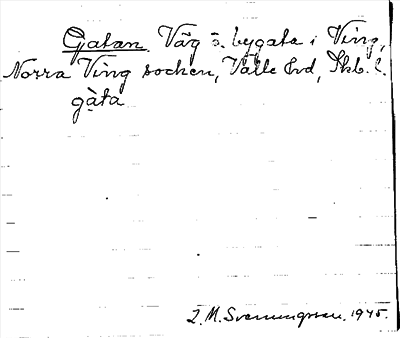 Gatan Väg o. bygata i Ving,
Norra Ving socken, Valle hrd, Skb. l.
gàta
M. Svenungsson. 1945.